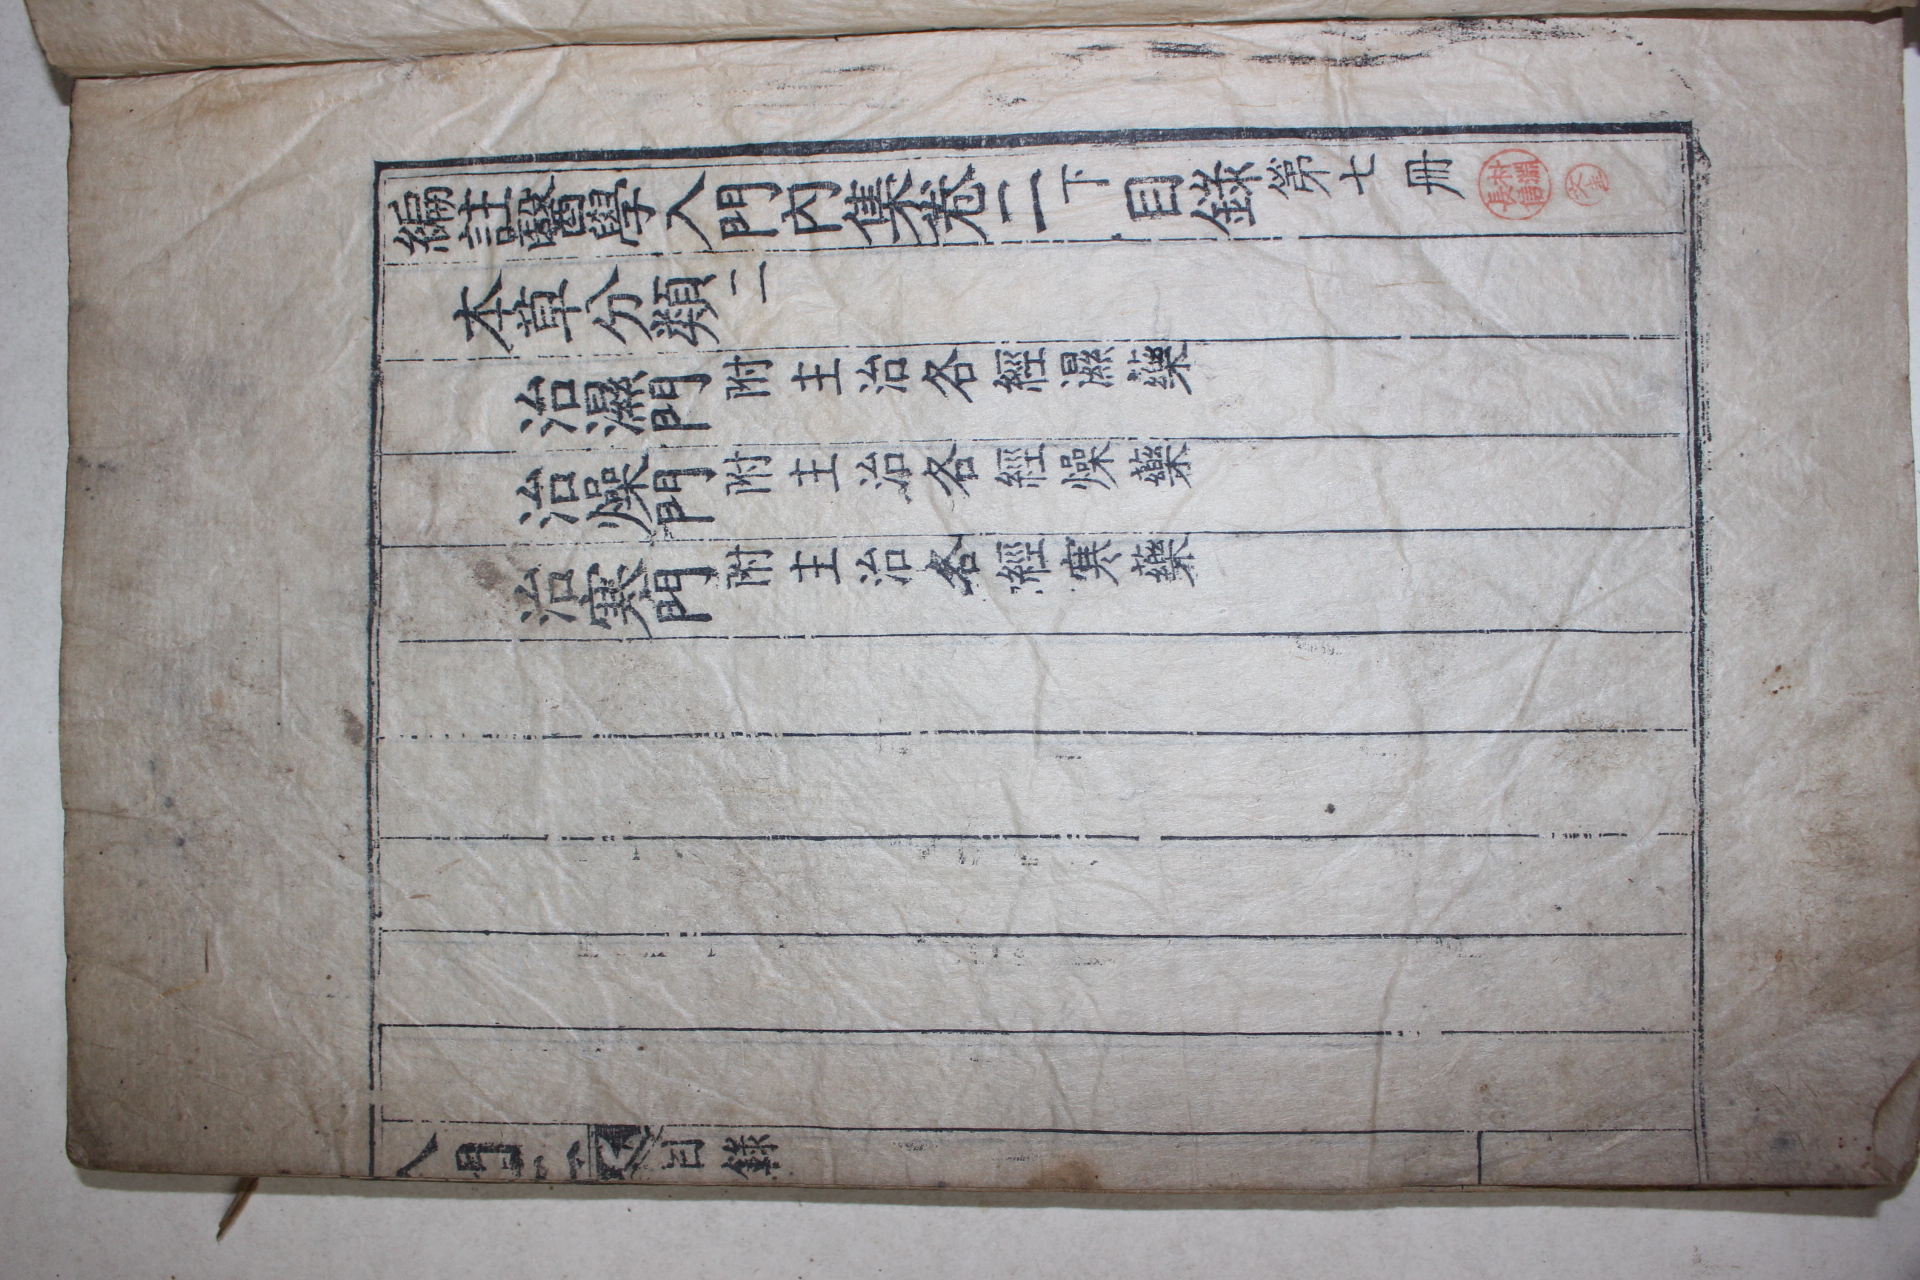 編註醫學入門內集卷二下 目錄 第七冊
本草分類 二
治濕門 附主治各經濕藥
治燥門 附主治各經燥藥
治寒門 附主治各經寒藥
目錄